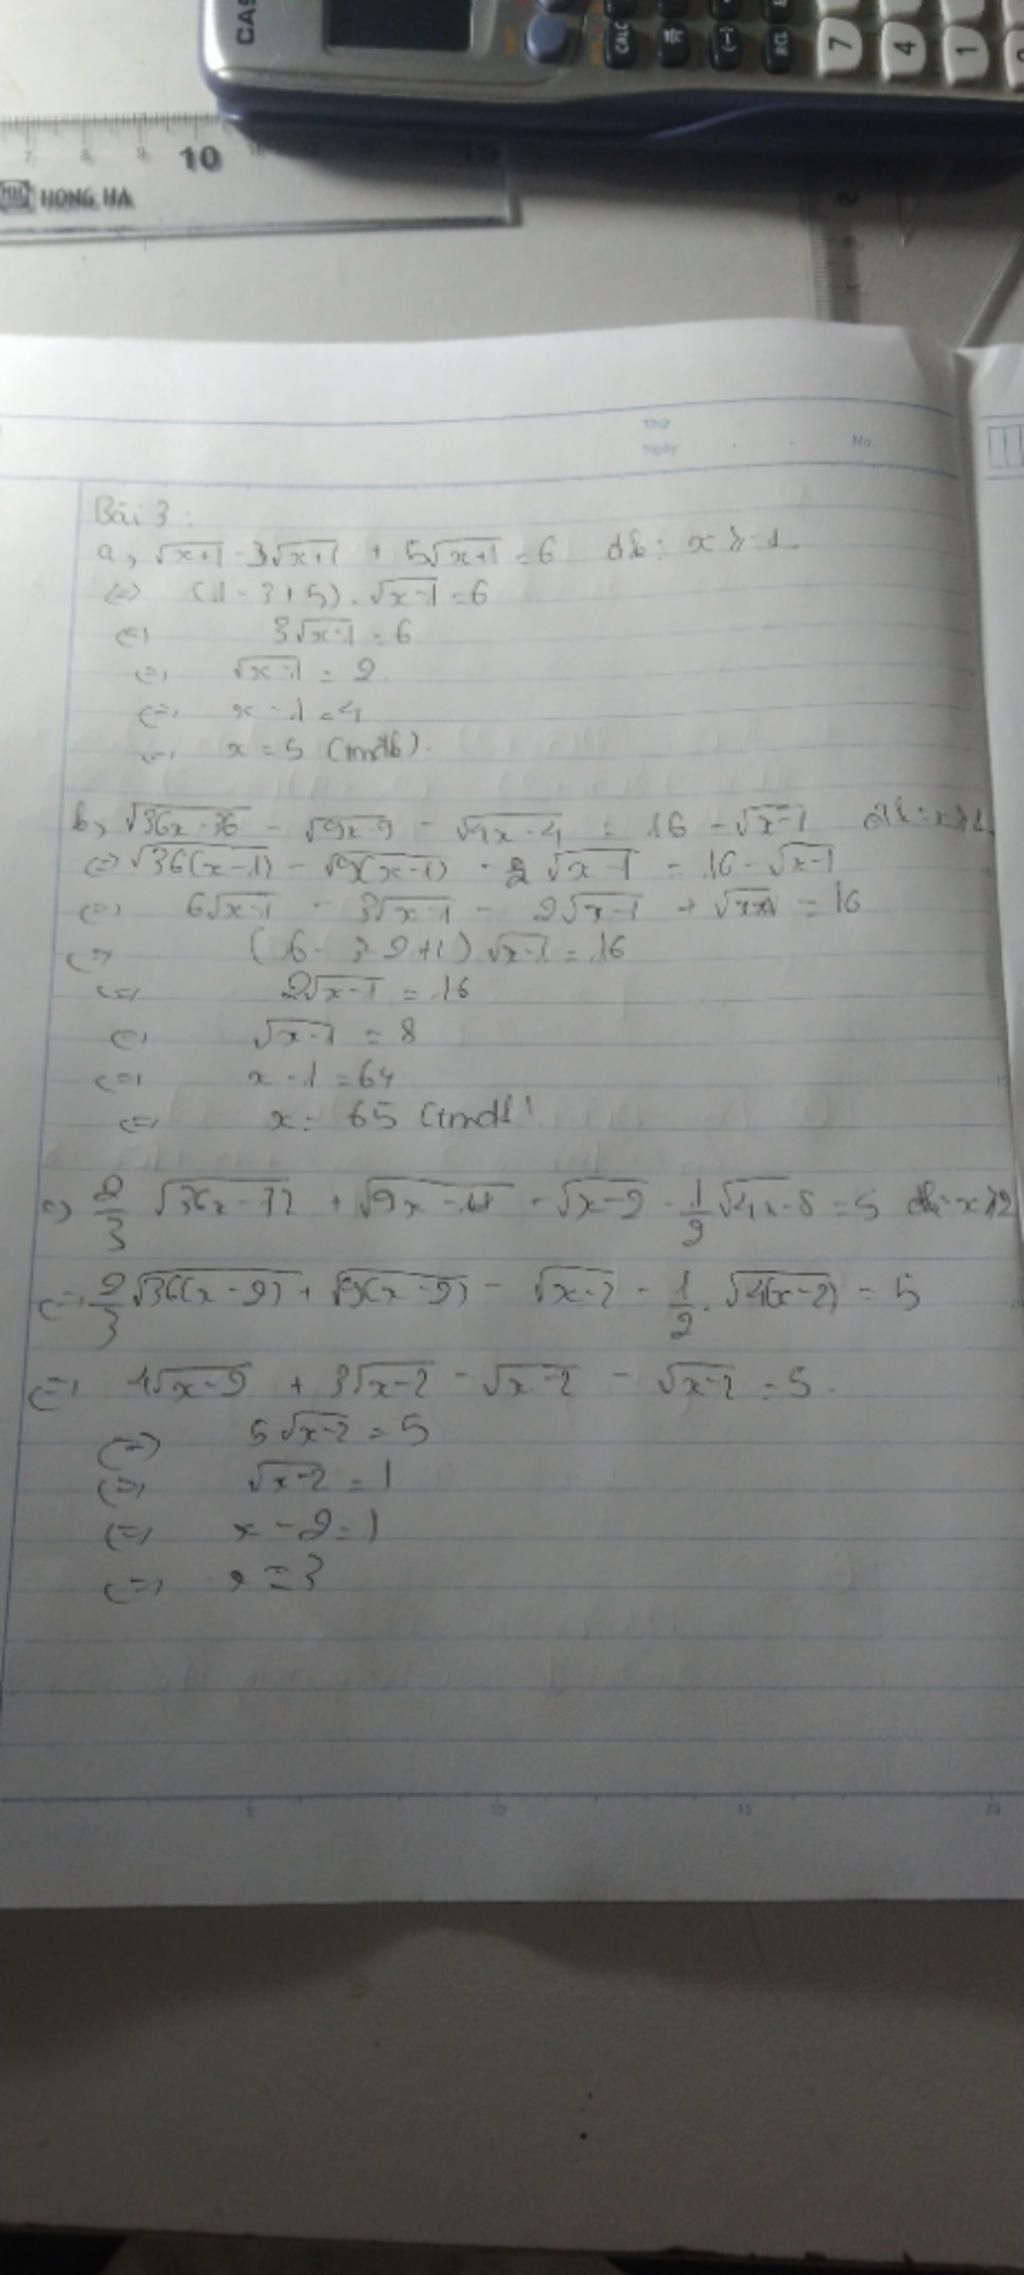 CAS
CALC
(−)
RCL
7
4
1
7 8 9 10 15
HONG HA
Thứ
Ngày No.
Bài 3:
a, √x+1 - 3√x+1 + 5√x+1 = 6 đk: x ≥ -1
<=> (1 - 3 + 5) . √x-1 = 6
<=> 3√x-1 = 6
<=> √x-1 = 2
<=> x - 1 = 4
<=> x = 5 (tmđk).
b, √36x-36 - √9x-9 - √4x-4 = 16 - √x-1 đk: x ≥ 1
<=> √36(x-1) - √9(x-1) - 2√x-1 = 16 - √x-1
<=> 6√x-1 - 3√x-1 - 2√x-1 + √x-1 = 16
<=> (6 - 3 2 + 1) √x-1 = 16
<=> 2√x-1 = 16
<=> √x-1 = 8
<=> x - 1 = 64
<=> x = 65 (tmđk)
c, 2/3 √36x-72 + √9x-18 - √x-2 - 1/2 √4x-8 = 5 đk: x ≥ 2
<=> 2/3 √36(x-2) + √9(x-2) - √x-2 - 1/2 . √4(x-2) = 5
<=> 4√x-2 + 3√x-2 - √x-2 - √x-2 = 5.
<=> 5√x-2 = 5
<=> √x-2 = 1
<=> x - 2 = 1
<=> x = 3
5 10 15 20